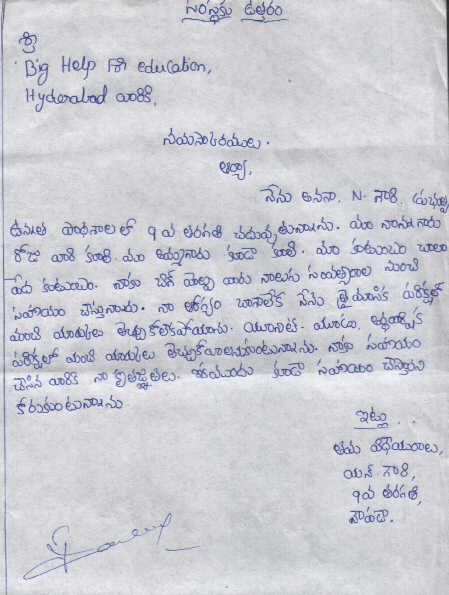 సంస్థకు ఉత్తరం
శ్రీ
Big Help For education,
Hyderabad వారికి,
నమస్కారములు.
ఆర్యా,
నేను అనగా, N. గౌరి,
ఉన్నత పాఠశాలలో 9వ తరగతి చదువుచున్నాను. మా నాన్నగారు
రోజు వారి కూలి. మా అమ్మగారు కూడా కూలి. మా కుటుంబం చాలా
పేద కుటుంబం. నాకు బిగ్ హెల్ప్ వారు నాలుగు సంవత్సరాల నుంచి
సహాయం చేస్తున్నారు. నా ఆరోగ్యం బాగాలేక నేను త్రైమాసిక పరీక్షల్లో
మంచి మార్కులు తెచ్చుకోలేకపోయాను. యూనిట్-మూడు, అర్ధవార్షిక
పరీక్షల్లో మంచి మార్కులు తెచ్చుకోవాలనుకుంటున్నాను. నాకు సహాయం
చేసిన వారికి నా కృతజ్ఞతలు. ఇకముందు కూడా సహాయం చేస్తారని
కోరుకుంటున్నాను
ఇట్లు
తమ విధేయురాలు,
యన్ గౌరి,
9వ తరగతి,